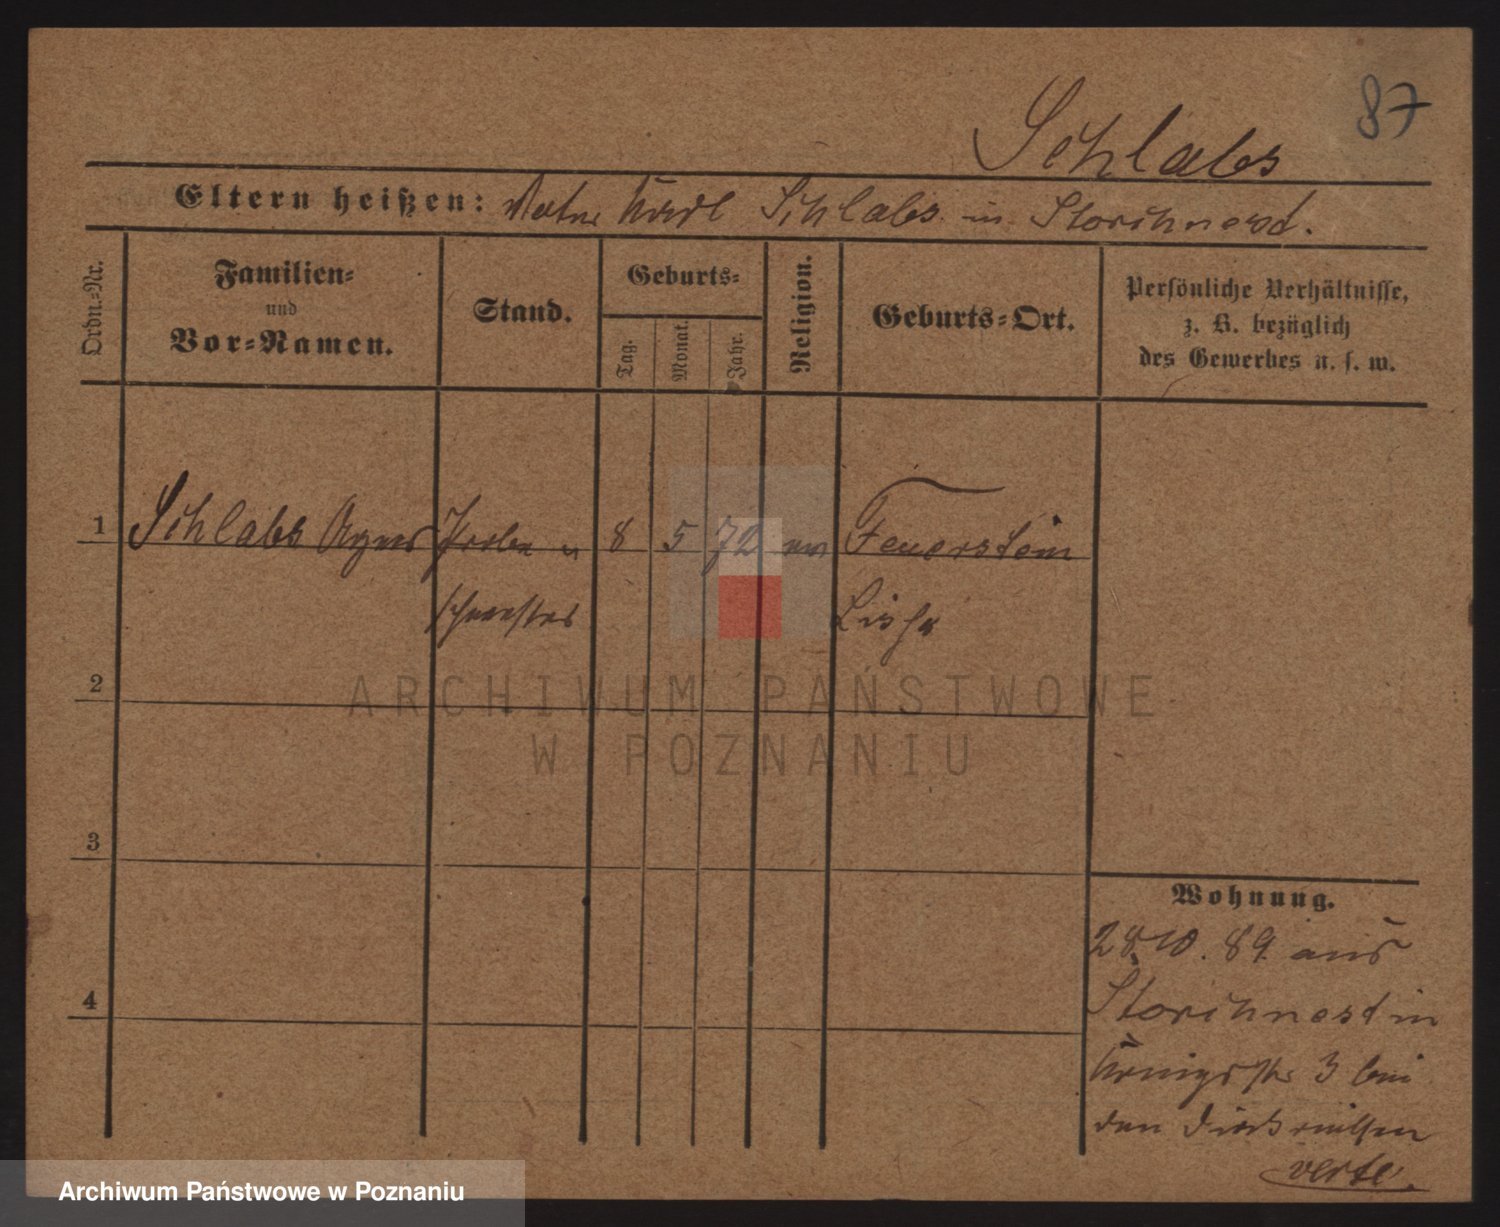 87
Schlabs
Eltern heißen: Vater Karl Schlabs in Storchnest.
Ordn.-Nr.
Familien-
und
Vor-Namen.
Stand.
Geburts-
Tag.
Monat.
Jahr.
Religion.
Geburts-Ort.
Persönliche Verhältnisse,
z. B. bezüglich
des Gewerbes u. s. w.
1 Schlabs Agnes Probe 8 5 72 ev Feuerstein
schwester Lissa
2
3
4
Wohnung.
28.10.89 aus
Storchnest in
Königsstr 3 bei
den Diakonissen
verte.
ARCHIWUM PAŃSTWOWE
W POZNANIU
Archiwum Państwowe w Poznaniu